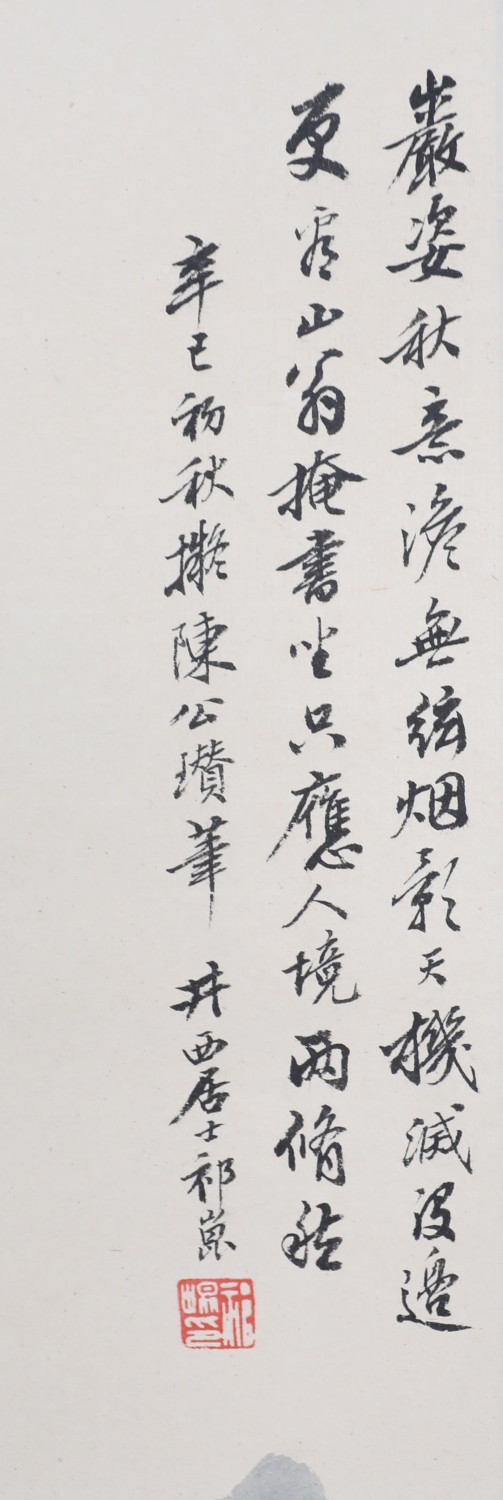 巖姿秋意澹無絃烟影天機滅沒邊
更看山翁掩書坐只應人境兩脩然
辛巳初秋擬陳公瓚筆 井西居士祁崑